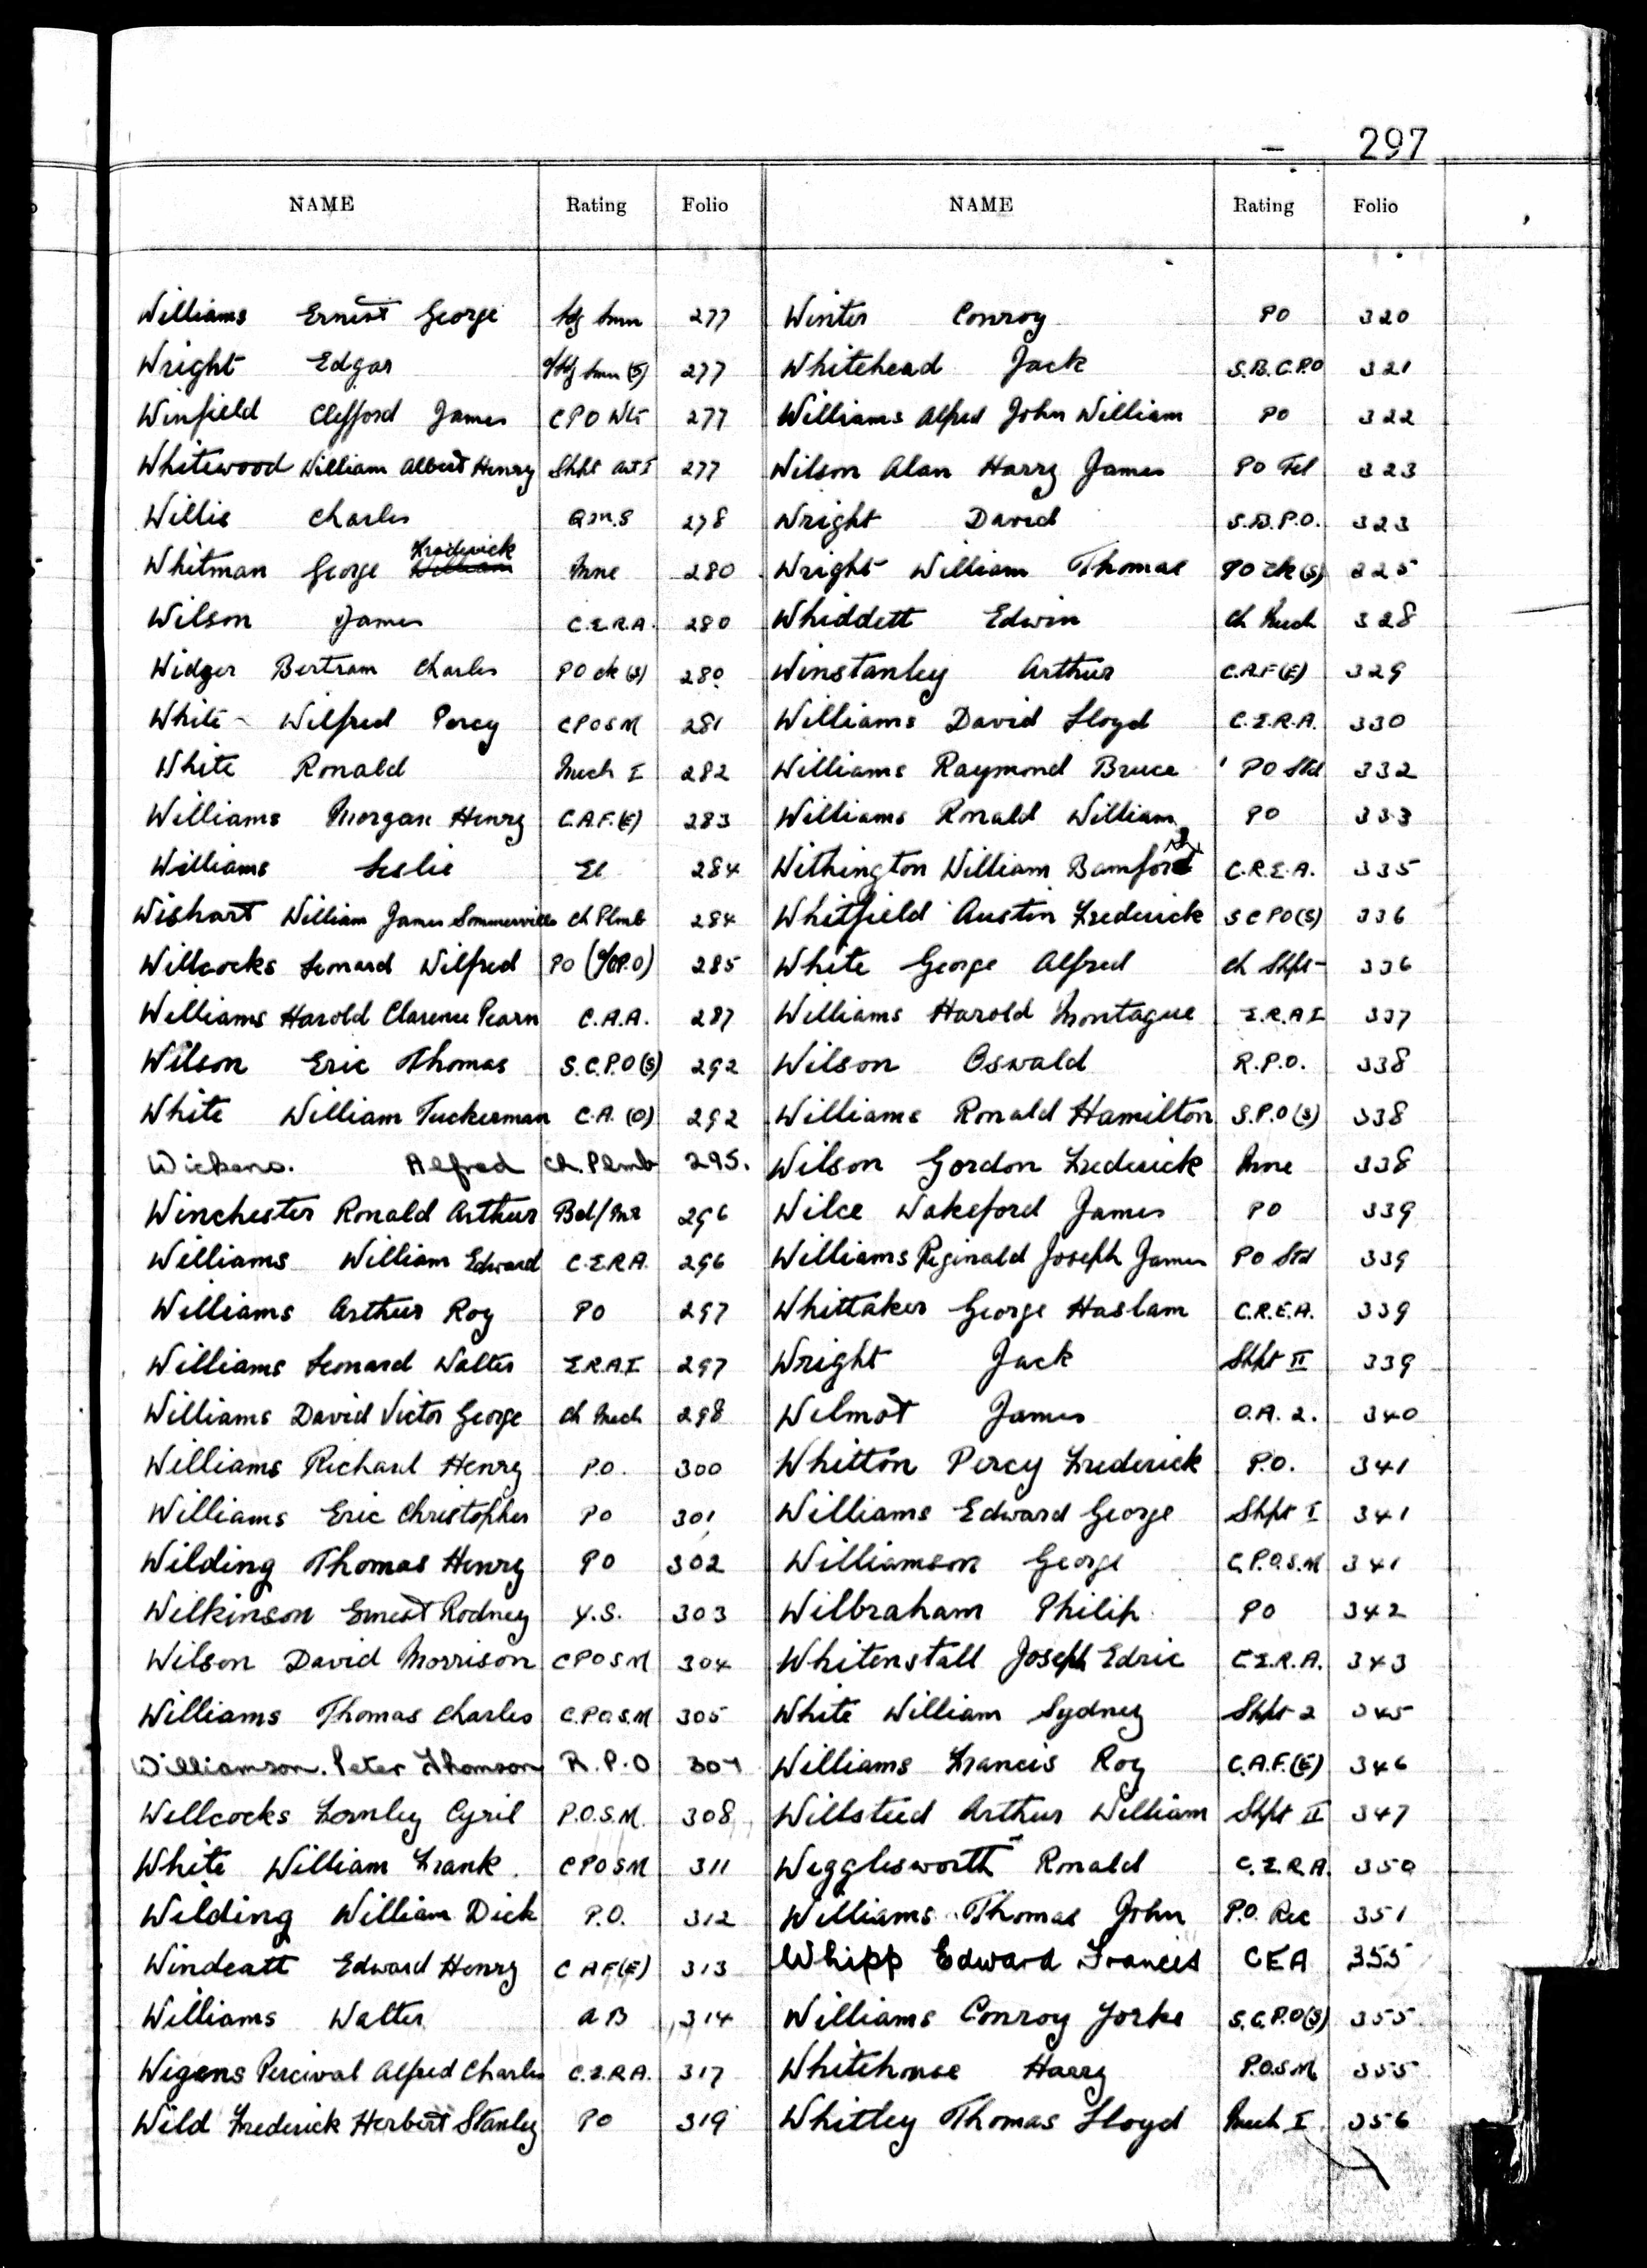 297
NAME Rating Folio NAME Rating Folio
Williams Ernest George 277 Winter Conroy PO 320
Wright Edgar 277 Whitehead Jack S.B.C.P.O 321
Winfield Clifford James CPO Wtr 277 Williams Alfred John William PO 322
Whitewood William Albert Henry Shpt Art I 277 Wilson Alan Harry James PO Tel 323
Willis Charles Q.M.S 278 Wright David S.B.P.O. 323
Frederick
Whitman George William Mne 280 Wright William Thomas PO Ck (S) 325
Wilson James C.E.R.A. 280 Whiddett Edwin Ch Mech 328
Widger Bertram Charles PO Ck (S) 280 Winstanley Arthur C.A.F (E) 329
White Wilfred Percy CPOSM 281 Williams David Lloyd C.E.R.A. 330
White Ronald Mech I 282 Williams Raymond Bruce PO Std 332
Williams Morgan Henry C.A.F. (E) 283 Williams Ronald William PO 333
Williams Leslie El 284 Withington William Bamford C.R.E.A. 335
Wishart William James Sommerville Ch Plmb 284 Whitfield Austin Frederick SCPO(S) 336
Willcocks Leonard Wilfred PO 285 White George Alfred Ch Shpt 336
Williams Harold Clarence Pearn C.A.A. 287 Williams Harold Montague E.R.A I 337
Wilson Eric Thomas S.C.P.O (S) 292 Wilson Oswald R.P.O. 338
White William Tuckerman C.A. (O) 292 Williams Ronald Hamilton S.P.O (S) 338
Wickens. Alfred Ch. Plmb 295. Wilson Gordon Frederick Mne 338
Winchester Ronald Arthur Bd/Mr 296 Wilce Wakeford James PO 339
Williams William Edward C.E.R.A. 296 Williams Reginald Joseph James PO Std 339
Williams Arthur Roy PO 297 Whittaker George Haslam C.R.E.A. 339
Williams Leonard Walter E.R.A.I 297 Wright Jack Shpt II 339
Williams David Victor George Ch Mech 298 Wilmot James O.A. 2. 340
Williams Richard Henry P.O. 300 Whitton Percy Frederick P.O. 341
Williams Eric Christopher PO 301 Williams Edward George Shpt I 341
Wilding Thomas Henry PO 302 Williamson George C.P.O.S.M 341
Wilkinson Ernest Rodney Y.S. 303 Wilbraham Philip PO 342
Wilson David Morrison CPOSM 304 Whitenstall Joseph Edric C.E.R.A. 343
Williams Thomas Charles C.P.O.S.M 305 White William Sydney Shpt 2 345
Williamson. Peter Thomson R.P.O 307 Williams Francis Roy C.A.F.(E) 346
Willcocks Fernley Cyril P.O.S.M. 308 Willsteed Arthur William Shpt II 347
White William Frank CPOSM 311 Wigglesworth Ronald C.E.R.A. 350
Wilding William Dick P.O. 312 Williams Thomas John P.O. Rec 351
Windeatt Edward Henry C A F(E) 313 Whipp Edward Francis CEA 355
Williams Walter AB 314 Williams Conroy Yorke S.C.P.O(S) 355
Wigens Percival Alfred Charles C.E.R.A. 317 Whitehouse Harry P.O.S.M 355
Wild Frederick Herbert Stanley PO 319 Whitley Thomas Lloyd Mech I 356